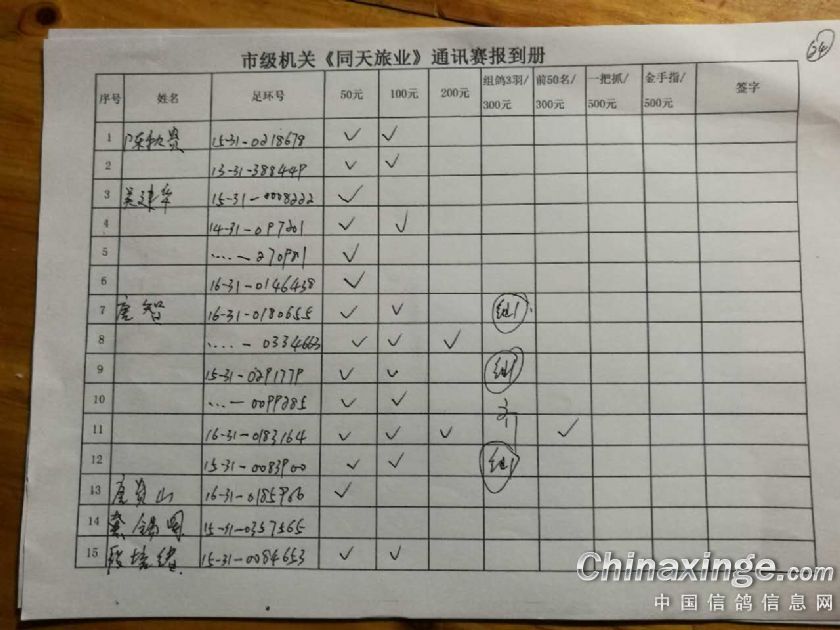 24
市级机关《同天旅业》通讯赛报到册
序号 姓名 足环号 50元 100元 200元 组鸽3羽/300元 前50名/300元 一把抓/500元 金手指/500元 签字
1 15-31-0218678 ✓ ✓
2 13-31-388449 ✓ ✓
3 吴建华 15-31-0008222 ✓
4 14-31-097201 ✓ ✓
5 ····-270981 ✓
6 16-31-0146438 ✓
7 唐智 16-31-0180655 ✓ ✓ 组1
8 ····-0334663 ✓ ✓ ✓
9 15-31-0291779 ✓ ✓ 组1
10 ···-0099285 ✓ ✓
11 16-31-0183164 ✓ ✓ ✓ ✓
12 15-31-0083900 ✓ ✓ 组1
13 16-31-0185966 ✓
14 15-31-0357565
15 15-31-0084653 ✓ ✓
Chinaxinge.com
中国信鸽信息网